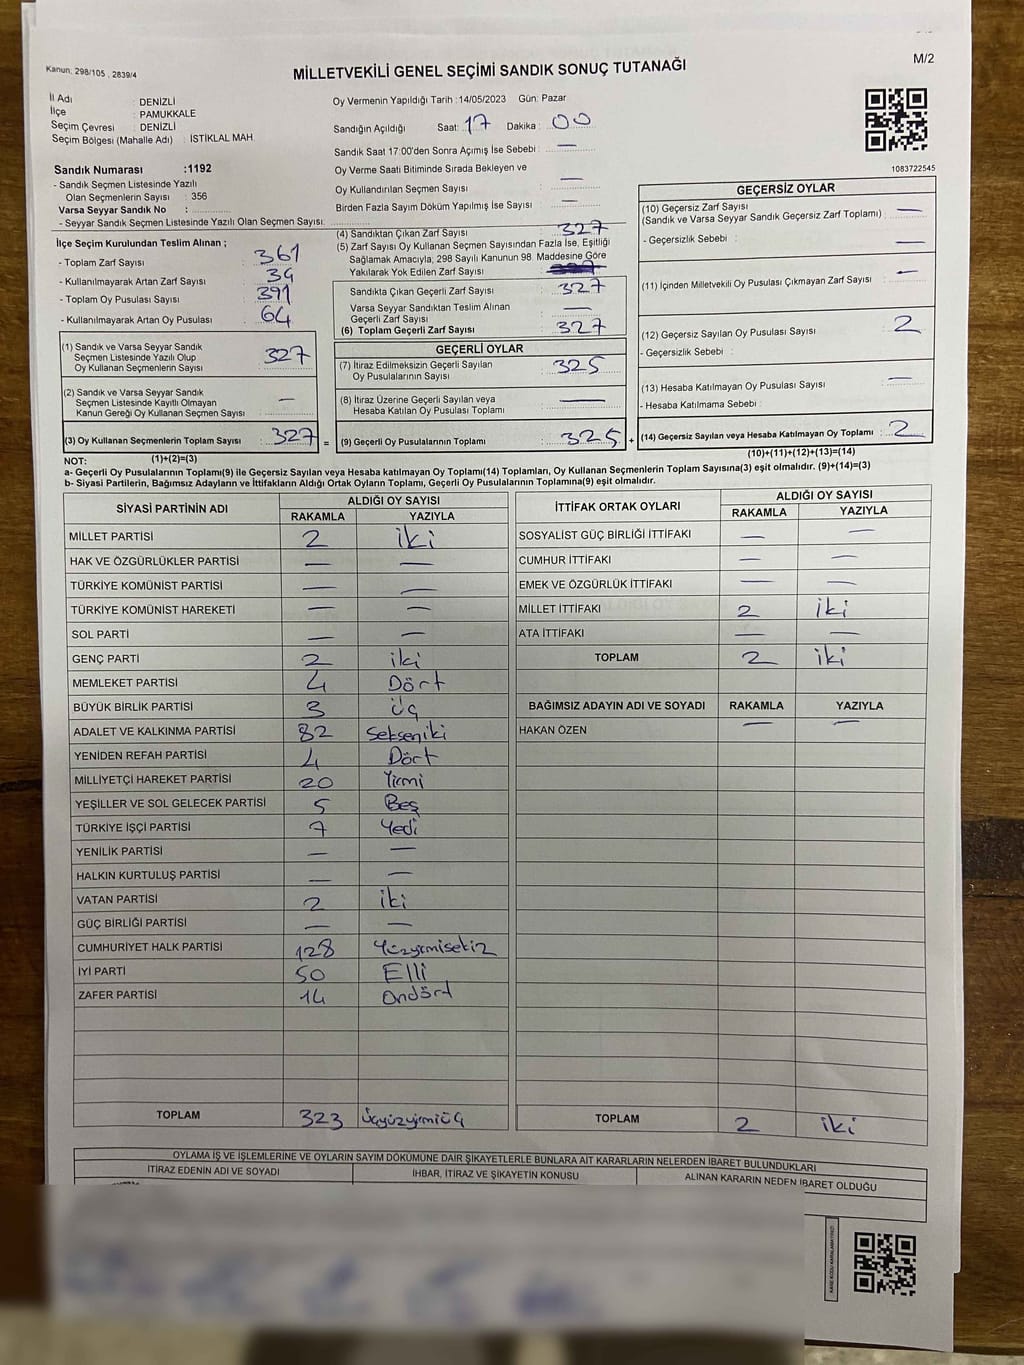 M/2
Kanun: 298/105 , 2839/4
MİLLETVEKİLİ GENEL SEÇİMİ SANDIK SONUÇ TUTANAĞI
İl Adı : DENİZLİ
İlçe : PAMUKKALE
Seçim Çevresi : DENİZLİ
Seçim Bölgesi (Mahalle Adı) : İSTİKLAL MAH.
Sandık Numarası :1192
- Sandık Seçmen Listesinde Yazılı
Olan Seçmenlerin Sayısı : 356
Varsa Seyyar Sandık No :
- Seyyar Sandık Seçmen Listesinde Yazılı Olan Seçmen Sayısı:
Oy Vermenin Yapıldığı Tarih :14/05/2023 Gün: Pazar
Sandığın Açıldığı Saat: 17 Dakika : 00
Sandık Saat 17:00'den Sonra Açımış İse Sebebi : —
Oy Verme Saati Bitiminde Sırada Bekleyen ve
Oy Kullandırılan Seçmen Sayısı : —
Birden Fazla Sayım Döküm Yapılmış İse Sayısı : —
1083722545
İlçe Seçim Kurulundan Teslim Alınan ;
- Toplam Zarf Sayısı : 361
- Kullanılmayarak Artan Zarf Sayısı : 34
- Toplam Oy Pusulası Sayısı : 391
- Kullanılmayarak Artan Oy Pusulası : 64
(1) Sandık ve Varsa Seyyar Sandık
Seçmen Listesinde Yazılı Olup
Oy Kullanan Seçmenlerin Sayısı : 327
(2) Sandık ve Varsa Seyyar Sandık
Seçmen Listesinde Kayıtlı Olmayan
Kanun Gereği Oy Kullanan Seçmen Sayısı : —
(3) Oy Kullanan Seçmenlerin Toplam Sayısı : 327 =
(1)+(2)=(3)
(4) Sandıktan Çıkan Zarf Sayısı : 327
(5) Zarf Sayısı Oy Kullanan Seçmen Sayısından Fazla İse, Eşitliği
Sağlamak Amacıyla, 298 Sayılı Kanunun 98. Maddesine Göre
Yakılarak Yok Edilen Zarf Sayısı
Sandıkta Çıkan Geçerli Zarf Sayısı : 327
Varsa Seyyar Sandıktan Teslim Alınan
Geçerli Zarf Sayısı : —
(6) Toplam Geçerli Zarf Sayısı : 327
GEÇERLİ OYLAR
(7) İtiraz Edilmeksizin Geçerli Sayılan
Oy Pusulalarının Sayısı : 325
(8) İtiraz Üzerine Geçerli Sayılan veya
Hesaba Katılan Oy Pusulası Toplamı : —
(9) Geçerli Oy Pusulalarının Toplamı : 325 +
GEÇERSİZ OYLAR
(10) Geçersiz Zarf Sayısı
(Sandık ve Varsa Seyyar Sandık Geçersiz Zarf Toplamı) : —
- Geçersizlik Sebebi : —
(11) İçinden Milletvekili Oy Pusulası Çıkmayan Zarf Sayısı : —
(12) Geçersiz Sayılan Oy Pusulası Sayısı : 2
- Geçersizlik Sebebi :
(13) Hesaba Katılmayan Oy Pusulası Sayısı : —
- Hesaba Katılmama Sebebi :
(14) Geçersiz Sayılan veya Hesaba Katılmayan Oy Toplamı : 2
(10)+(11)+(12)+(13)=(14)
NOT:
a- Geçerli Oy Pusulalarının Toplamı(9) ile Geçersiz Sayılan veya Hesaba katılmayan Oy Toplamı(14) Toplamları, Oy Kullanan Seçmenlerin Toplam Sayısına(3) eşit olmalıdır. (9)+(14)=(3)
b- Siyasi Partilerin, Bağımsız Adayların ve İttifakların Aldığı Ortak Oyların Toplamı, Geçerli Oy Pusulalarının Toplamına(9) eşit olmalıdır.
SİYASİ PARTİNİN ADI ALDIĞI OY SAYISI
RAKAMLA YAZIYLA
MİLLET PARTİSİ 2 iki
HAK VE ÖZGÜRLÜKLER PARTİSİ — —
TÜRKİYE KOMÜNİST PARTİSİ — —
TÜRKİYE KOMÜNİST HAREKETİ — —
SOL PARTİ — —
GENÇ PARTİ 2 iki
MEMLEKET PARTİSİ 4 Dört
BÜYÜK BİRLİK PARTİSİ 3 üç
ADALET VE KALKINMA PARTİSİ 82 Seksen iki
YENİDEN REFAH PARTİSİ 4 Dört
MİLLİYETÇİ HAREKET PARTİSİ 20 Yirmi
YEŞİLLER VE SOL GELECEK PARTİSİ 5 Beş
TÜRKİYE İŞÇİ PARTİSİ 7 Yedi
YENİLİK PARTİSİ — —
HALKIN KURTULUŞ PARTİSİ — —
VATAN PARTİSİ 2 iki
GÜÇ BİRLİĞİ PARTİSİ — —
CUMHURİYET HALK PARTİSİ 128 Yüzyirmisekiz
İYİ PARTİ 50 Elli
ZAFER PARTİSİ 14 Ondört
TOPLAM 323 Üçyüzyirmiüç
İTTİFAK ORTAK OYLARI ALDIĞI OY SAYISI
RAKAMLA YAZIYLA
SOSYALİST GÜÇ BİRLİĞİ İTTİFAKI — —
CUMHUR İTTİFAKI — —
EMEK VE ÖZGÜRLÜK İTTİFAKI — —
MİLLET İTTİFAKI 2 iki
ATA İTTİFAKI — —
TOPLAM 2 iki
BAĞIMSIZ ADAYIN ADI VE SOYADI RAKAMLA YAZIYLA
HAKAN ÖZEN — —
TOPLAM 2 iki
OYLAMA İŞ VE İŞLEMLERİNE VE OYLARIN SAYIM DÖKÜMÜNE DAİR ŞİKAYETLERLE BUNLARA AİT KARARLARIN NELERDEN İBARET BULUNDUKLARI
İTİRAZ EDENİN ADI VE SOYADI İHBAR, İTİRAZ VE ŞİKAYETİN KONUSU ALINAN KARARIN NEDEN İBARET OLDUĞU